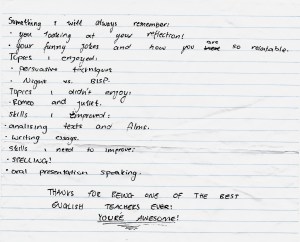 Something I will always remember:
• you looking at your reflection!
• your funny jokes and how you are so relatable.
Topics I enjoyed:
• persuasive techniques
• Nigus vs. BISP.
Topics I didn't enjoy:
• Romeo and juliet.
Skills I improved:
• analising texts and films.
• writing essays.
Skills I need to improve:
• SPELLING!
• oral presentation speaking.
THANKS FOR BEING ONE OF THE BEST
ENGLISH TEACHERS EVER!
YOU'RE AWESOME!